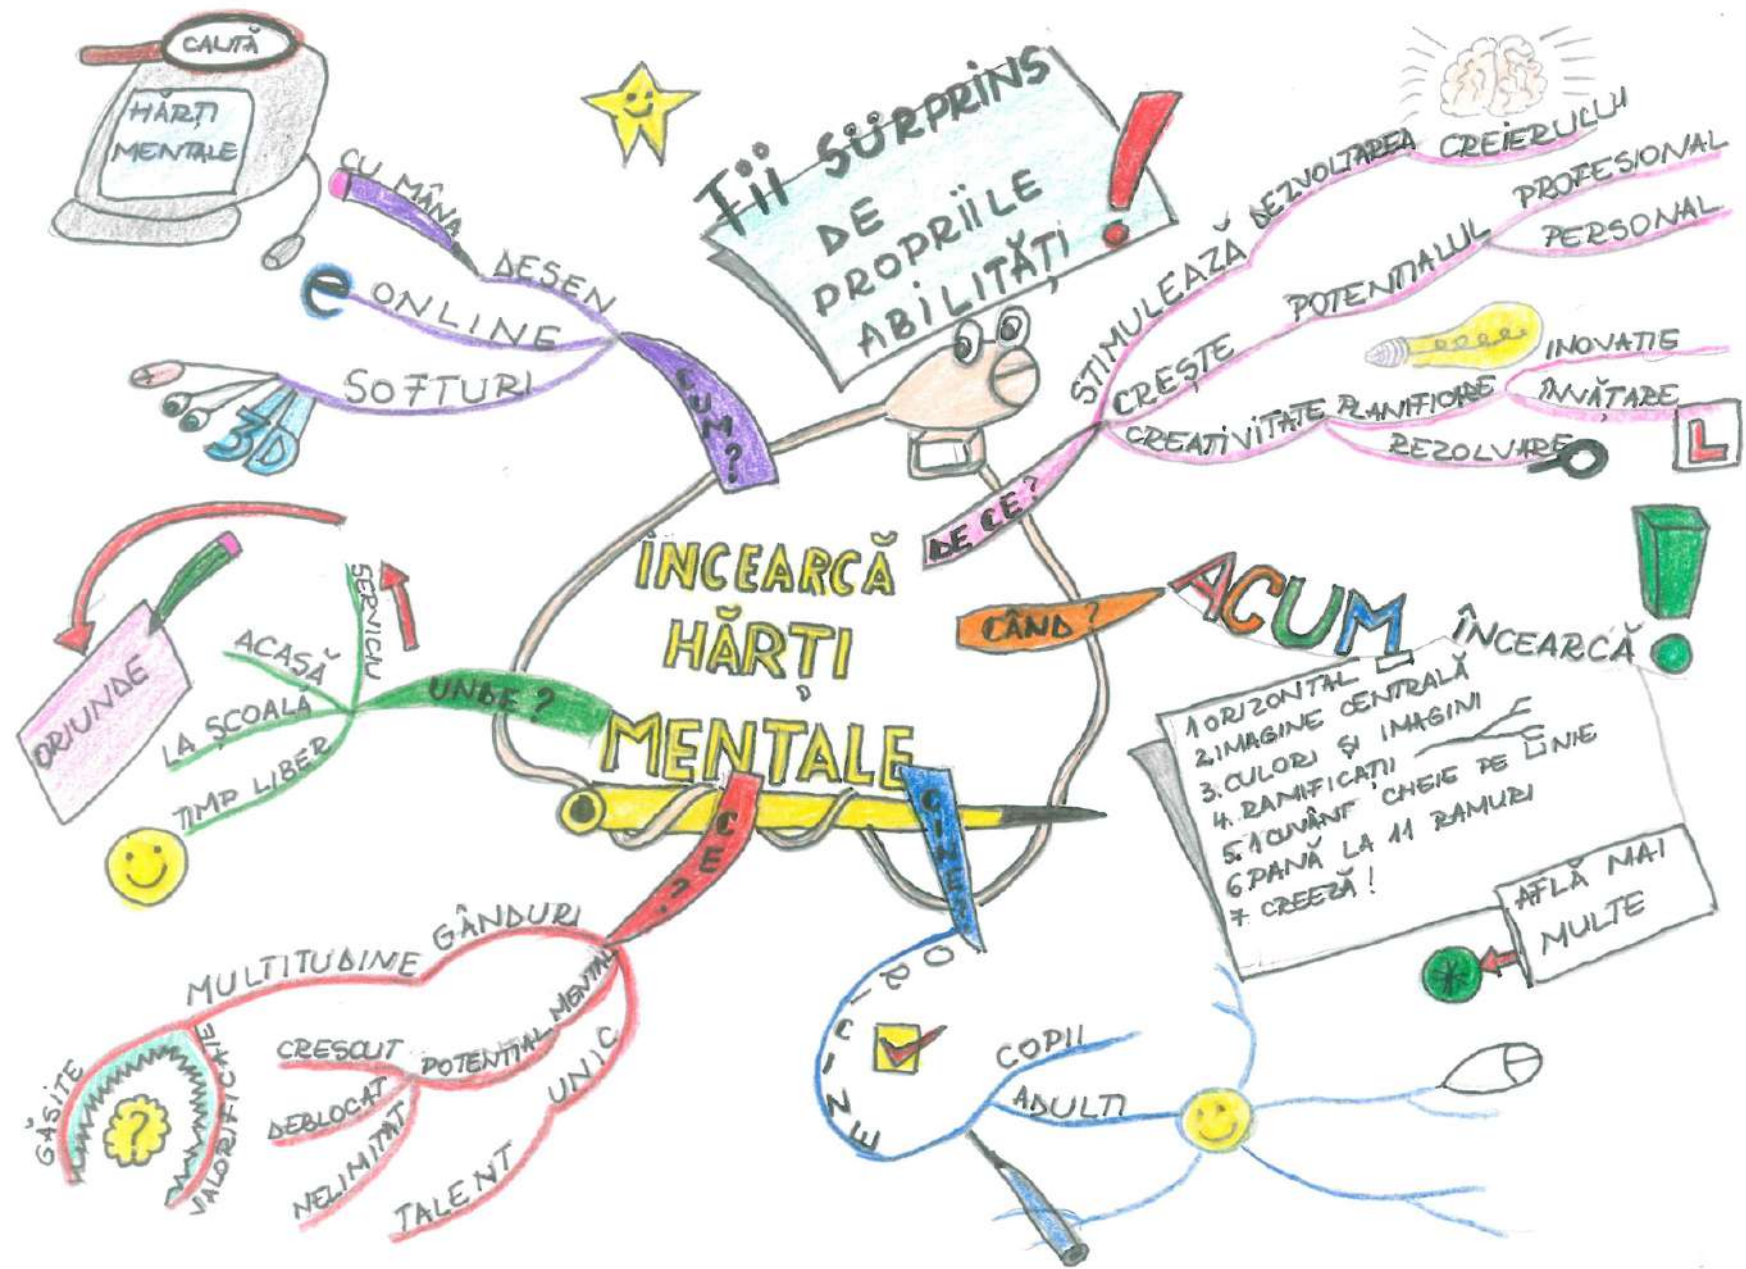 CAUTĂ
HĂRȚI
MENTALE
CU MÂNA
DESEN
ONLINE
SOFTURI
3D
CUM?
Fii SURPRiNS
DE
PROPRiiLE
ABiLiTĂȚi!
STIMULEAZĂ DEZVOLTAREA CREIERULU
CREȘTE POTENTIALUL PROFESIONAL
PERSONAL
CREATIVITATE PLANIFICARE INOVATIE
ÎNVĂȚARE
REZOLVARE
L
DE CE?
ÎNCEARCĂ
HĂRȚI
MENTALE
CÂND?
ACUM
ÎNCEARCĂ!
1 ORIZONTAL
2. IMAGINE CENTRALĂ
3. CULORI ȘI IMAGINI
4. RAMIFICATII
5. 1 CUVÂNT CHEIE PE LINIE
6 PANĂ LA 11 RAMURI
7. CREEZĂ!
AFLĂ MAI
MULTE
UNDE?
SERVICIU
ACASĂ
LA ȘCOALĂ
TIMP LIBER
ORIUNDE
CE?
GÂNDURI
MULTITUDINE
GĂSITE
VALORIFICATE
?
MENTAL
POTENTIAL
CRESCUT
DEBLOCAT
NELIMITAT
UNIC
TALENT
CINE?
ORICINE
COPII
ADULTI